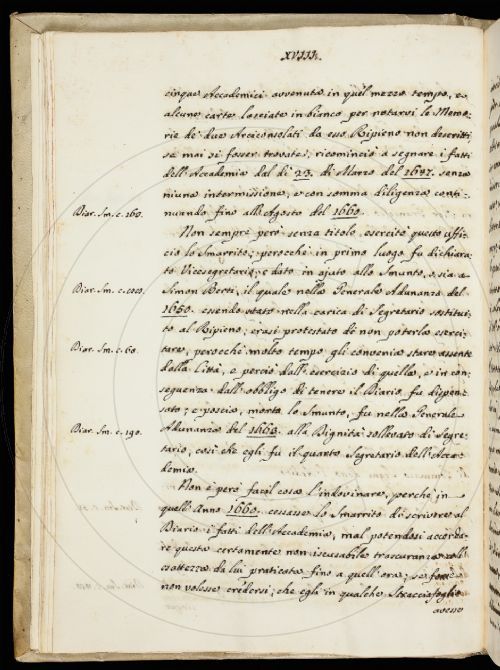 XVIII.
cinque Accademici avvenuta in quel mezzo tempo, e
alcune carte lasciate in bianco per notarvi le Memo-
rie de' due Arciconsolati da esso Ripieno non descritti,
se mai si fosser trovate, ricominciò a segnare i fatti
dell'Accademia dal dì 23. di Marzo del 1647. senza
niuna intermissione, e con somma diligenza conti-
Diar. Sm. c. 160.
nuando fino all'Agosto del 1660.
Non sempre però senza titolo esercitò questo uffi-
cio lo Smarrito; perocchè in primo luogo fu dichiara-
to Vicesegretario, e dato in ajuto allo Smunto, o sia a
Diar. Sm. c.
Simon Berti, il quale nella Generale Adunanza del
1650. essendo stato nella carica di Segretario sostitui-
to al Ripieno, erasi protestato di non poterla eserci-
Diar. Sm. c. 60.
tare, perocchè molto tempo gli conveniva stare assente
dalla Città, e perciò dall'esercizio di quella, e in con-
seguenza dall'obbligo di tenere il Diario fu dispen-
sato; e poscia, morto lo Smunto, fu nella Generale
Diar. Sm. c. 190.
Adunanza del alla Dignità sollevato di Segre-
tario, così che egli fu il quarto Segretario dell'Acca-
demia.
Non è però facil cosa l'indovinare, perchè in
quell'Anno 1660. cessasse lo Smarrito di scrivere al
Diario i fatti dell'Accademia, mal potendosi accorda-
re questa certamente non iscusabile trascuranza coll'
esattezza da lui praticata fino a quell'ora; se forse
non volesse credersi, che egli in qualche Stracciafoglio
avesse